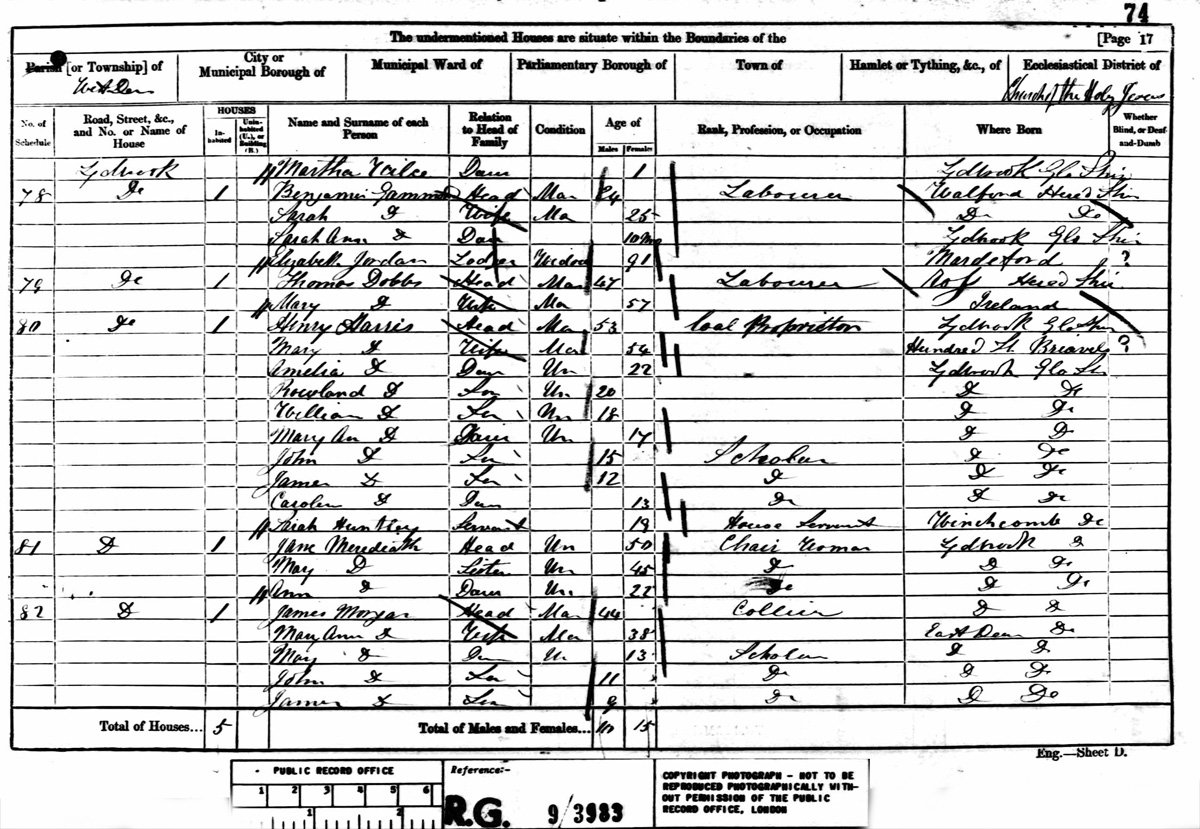 74
The undermentioned Houses are situate within the Boundaries of the [Page 17
Parish [or Township] of City or Municipal Borough of Municipal Ward of Parliamentary Borough of Town of Hamlet or Tything, &c., of Ecclesiastical District of
West Dean Church of the Holy Jesus
No. of Schedule Road, Street, &c., and No. or Name of House HOUSES Inhabited Uninhabited (U.), or Building (B.) Name and Surname of each Person Relation to Head of Family Condition Age of Males Females Rank, Profession, or Occupation Where Born Whether Blind, or Deaf-and-Dumb
Lydbrook Martha Daur 1 Lydbrook Glo Shir
78 Do 1 Benjamin Gammon Head Mar 24 Labourer Walford Hered Shir
Sarah Do Wife Ma 25 Do Do
Sarah Ann Do Daur 10 Mo Lydbrook Glo Shir
Elizabeth Jordan Lodger Widow 91 ?
79 Do 1 Thomas Dobbs Head Mar 47 Labourer Ross Hered Shir
Mary Do Wife Ma 57 Ireland
80 Do 1 Henry Harris Head Ma 53 Coal Proprietor Lydbrook Glo Shir
Mary Do Wife Mar 54 Hundred St Briavels ?
Amelia Do Daur Un 22 Lydbrook Glo Sh
Rowland Do Son Un 20 Do Do
William Do Son Un 18 Do Do
Mary An Do Daur Un 17 Do Do
John Do Son 15 Scholar Do Do
James Do Son 12 Do Do Do
Carolen Do Daur 13 Do Do Do
Sarah Huntley Servant 19 House Servant Winchcomb Do
81 Do 1 Jane Meredith Head Un 50 Chair Woman Lydbrook Do
Mary Do Sister Un 45 Do Do Do
Ann Do Daur Un 22 Do Do Do
82 Do 1 James Morgan Head Mar 44 Collier Do Do
Mary Ann Do Wife Mar 38 East Dean Do
Mary Do Daur Un 13 Scholar Do Do
John Do Son 11 Do Do Do
James Do Son 9 Do Do Do
Total of Houses... 5 Total of Males and Females... 10 15
Eng.—Sheet D.
PUBLIC RECORD OFFICE
1 2 3 4 5 6
1 2
Reference:-
R.G. 9/3983
COPYRIGHT PHOTOGRAPH - NOT TO BE
REPRODUCED PHOTOGRAPHICALLY WITH-
OUT PERMISSION OF THE PUBLIC
RECORD OFFICE, LONDON